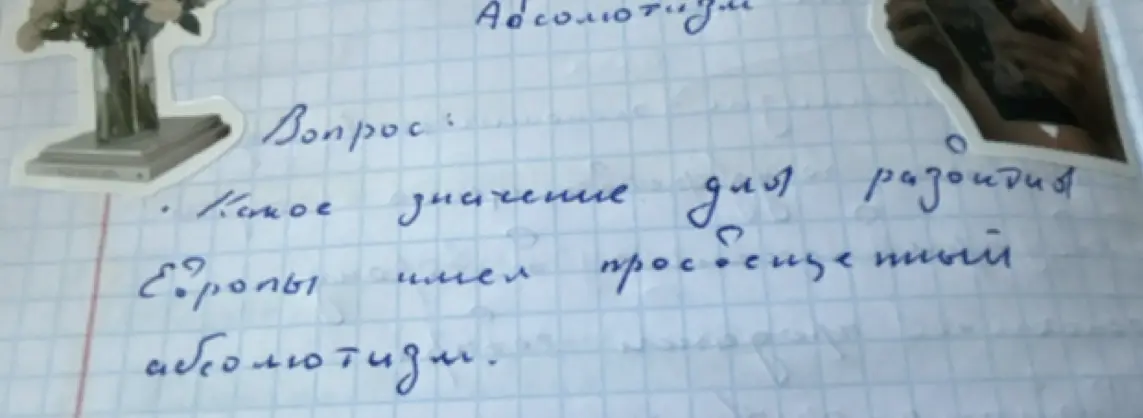 Абсолютизм
Вопрос:
. Какое значение для развития
Европы имел просвещенный
абсолютизм.